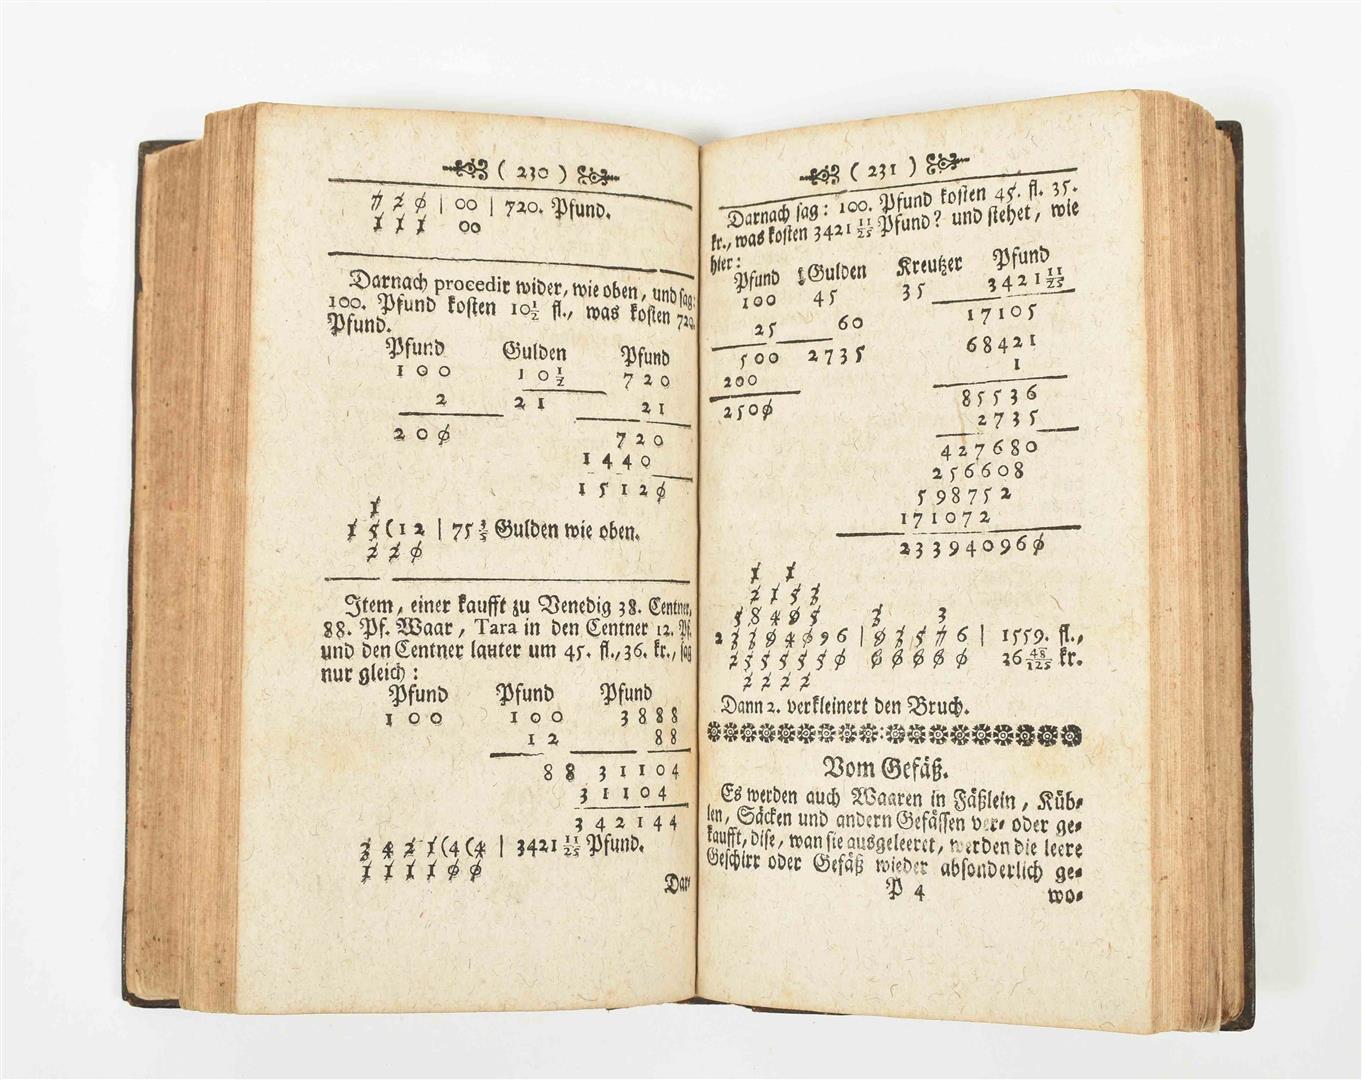 ( 230 )
7 2 0 | 00 | 720. Pfund.
1 1 1 00
Darnach procedir wider, wie oben, und sag:
100. Pfund kosten 10 1/2 fl., was kosten 720.
Pfund.
Pfund Gulden Pfund
1 0 0 1 0 1/2 7 2 0
2 2 1 2 1
2 0 0 7 2 0
1 4 4 0
1 5 1 2 0
1
1 5 (1 2 | 75 3/5 Gulden wie oben.
2 2 0
Item, einer kaufft zu Venedig 38. Centner,
88. Pf. Waar, Tara in den Centner 12. Pf.
und den Centner lauter um 45. fl., 36. kr., sag
nur gleich:
Pfund Pfund Pfund
1 0 0 1 0 0 3 8 8 8
1 2 8 8
8 8 3 1 1 0 4
3 1 1 0 4
3 4 2 1 4 4
3 4 2 1 (4 (4 | 3421 11/25 Pfund.
1 1 1 1 0 0
Dar-
( 231 )
Darnach sag: 100. Pfund kosten 45. fl. 35.
kr., was kosten 3421 11/25 Pfund? und stehet, wie
hier:
Pfund Gulden Kreutzer Pfund
100 45 35 3421 11/25
25 60 17105
500 2735 68421
200 1
2500 85536
2735
427680
256608
598752
171072
233940960
1 1
2 1 5 3
5 8 4 0 5 3 3
2 3 3 9 4 0 9 6 | 8 3 5 7 6 | 1559. fl.,
2 5 5 5 5 5 0 6 0 0 0 0 36 48/125 kr.
2 2 2 2
Dann 2. verkleinert den Bruch.
Vom Gefäß.
Es werden auch Waaren in Fäßlein, Küb-
len, Säcken und andern Gefässen ver- oder ge-
kaufft, dise, wan sie ausgeleeret, werden die leere
Geschirr oder Gefäß wieder absonderlich ge-
P 4 wo-